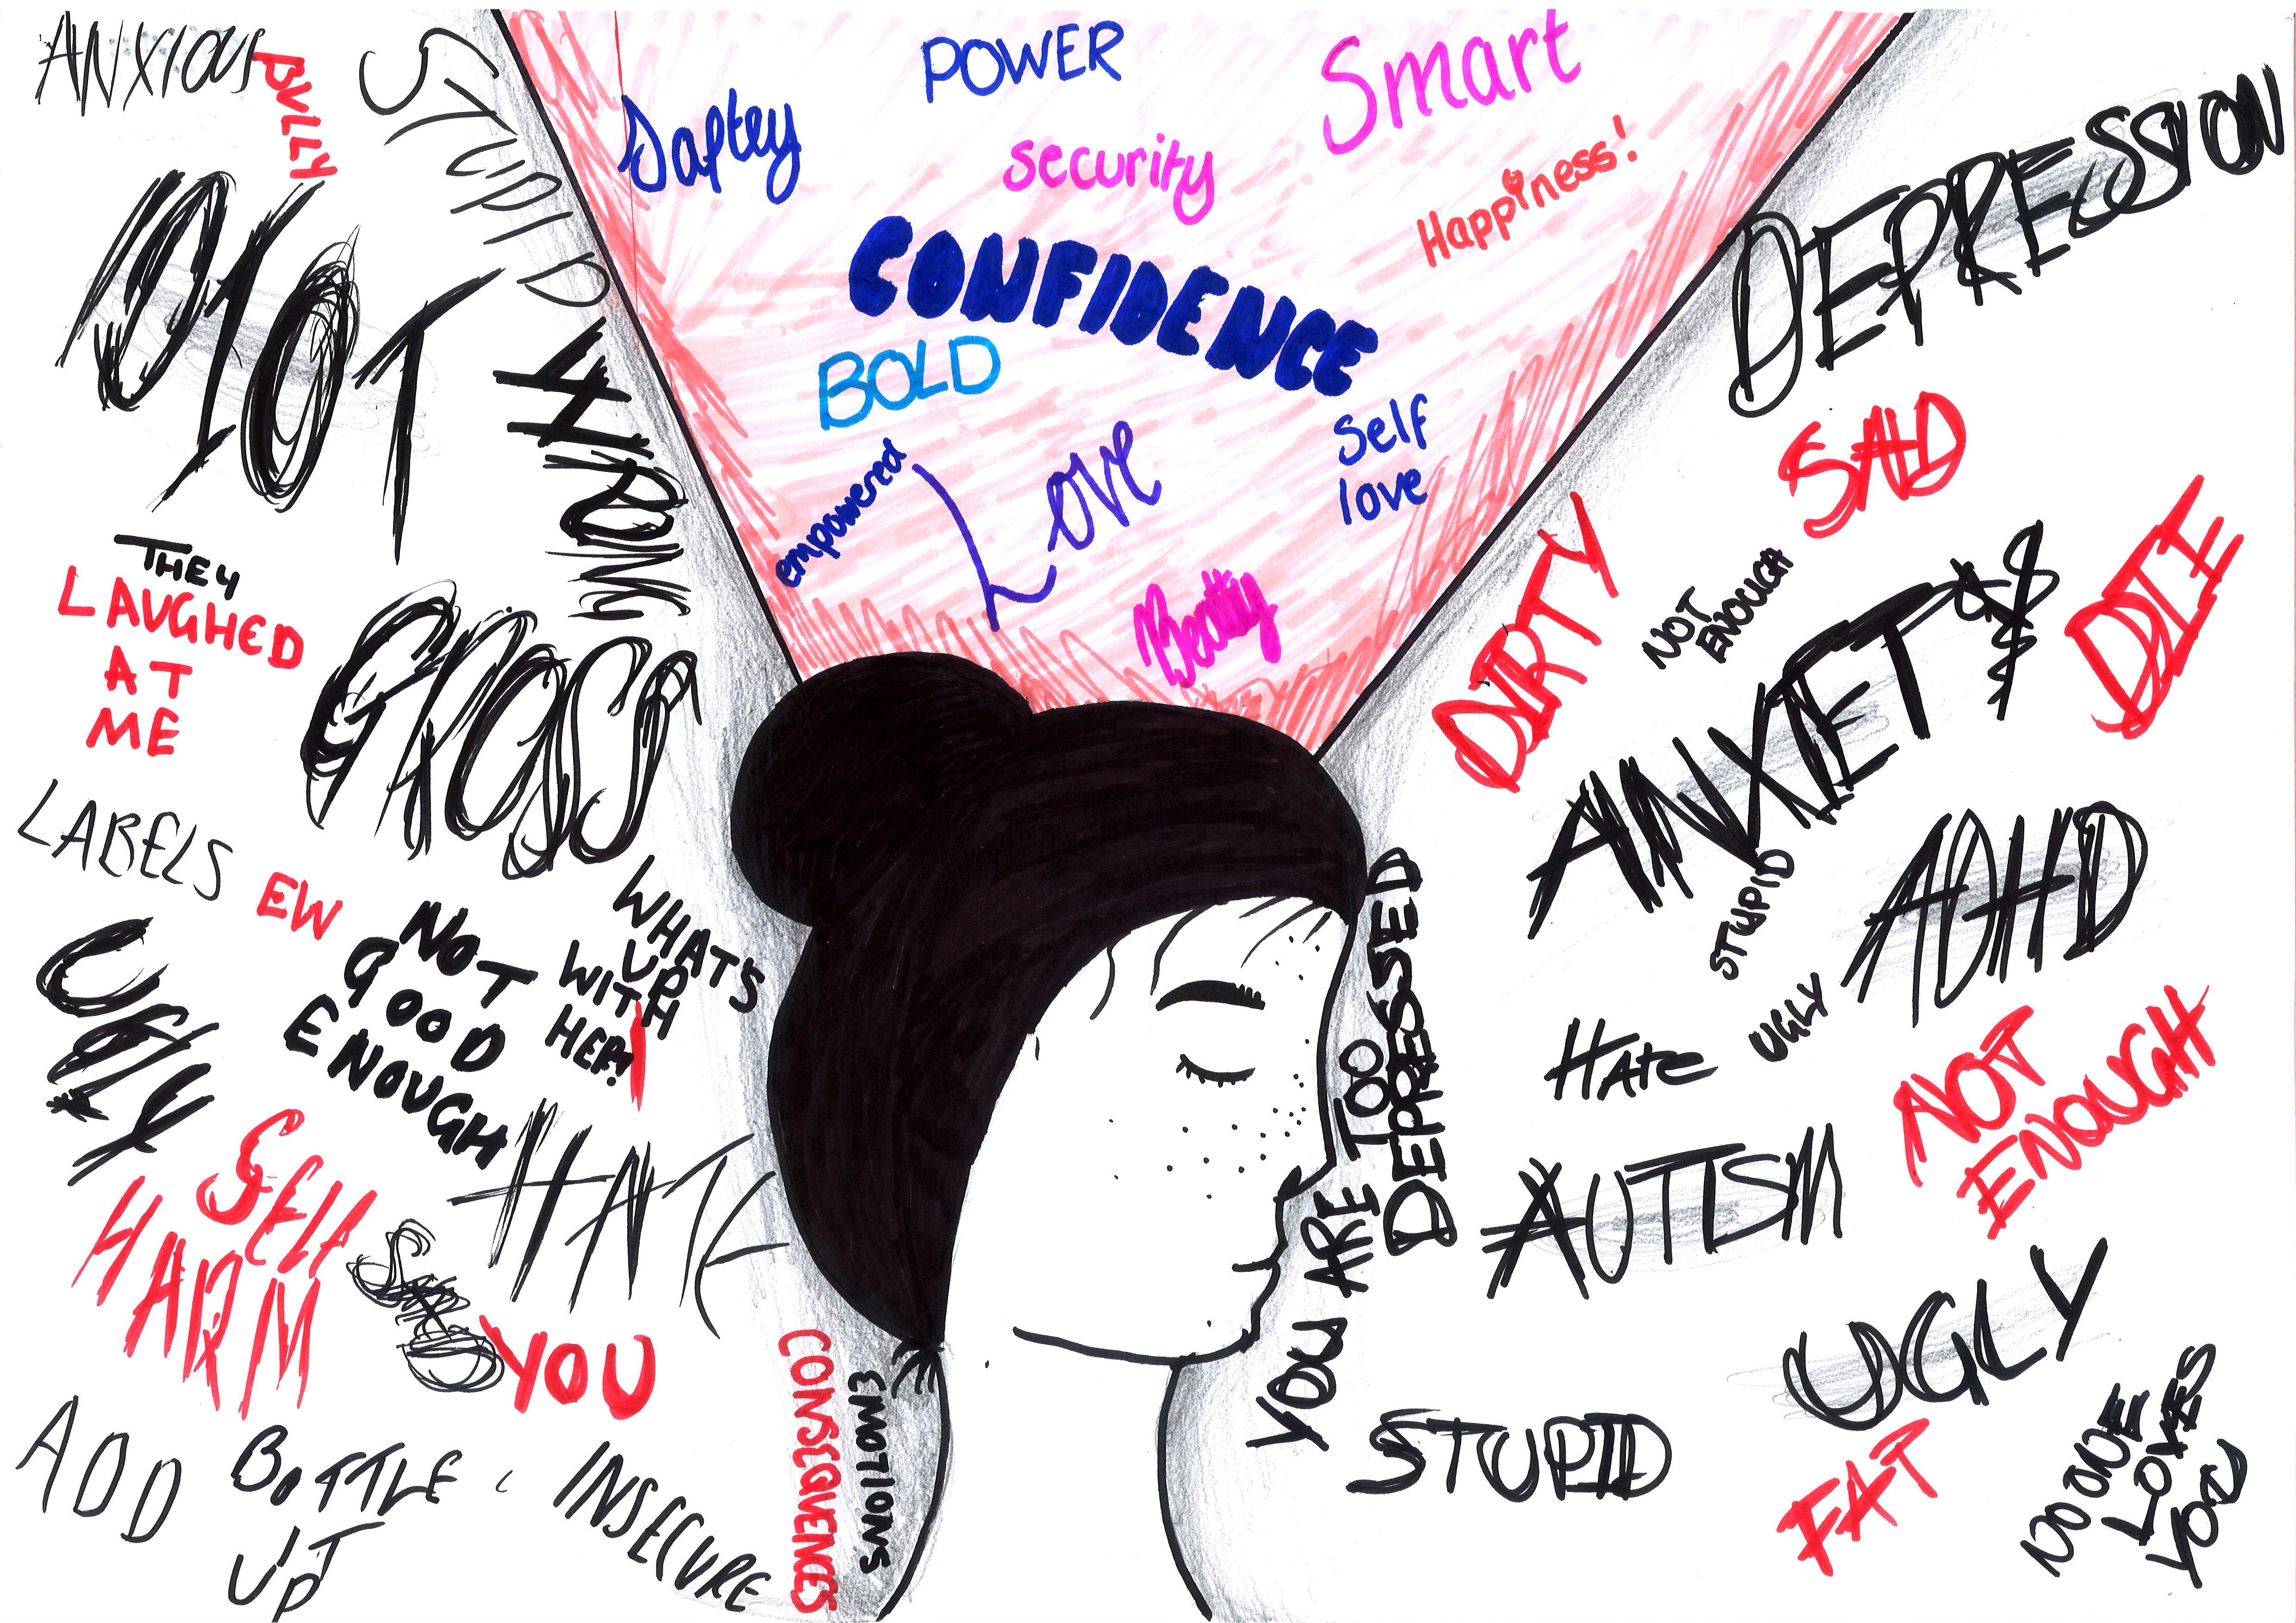 ANXIOUS
BULLY
STUPID
IDIOT
THEY
LAUGHED
AT
ME
GROSS
LABELS
EW
UGLY
NOT
GOOD
ENOUGH
WHAT'S
UP
WITH
HER?!
SELF
HARM
HATE
YOU
ADD
BOTTLE
UP
INSECURE
CONSEQUENCES
EMOTIONS
POWER
Smart
Saftey
security
Happiness!
CONFIDENCE
BOLD
Self
love
empowered
Love
Beauty
DEPRESSION
SAD
DIRTY
NOT
ENOUGH
ANXIETY
DIE
STUPID
ADHD
YOU ARE TOO
DEPRESSED
HATE
UGLY
NOT
ENOUGH
AUTISM
UGLY
STUPID
FAT
NO ONE
LOVES
YOU